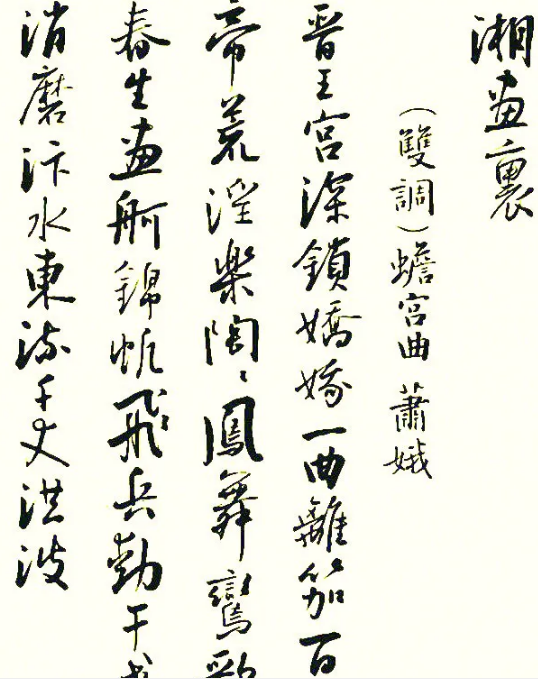 湘畫裏
（雙調）蟾宮曲 蕭娥
晋王宮深鎖嬌娥一曲離笳百
帝荒淫樂陶〻鳳舞鸞歌
春生畫舸錦帆飛兵動干
消磨汴水東流千丈洪波